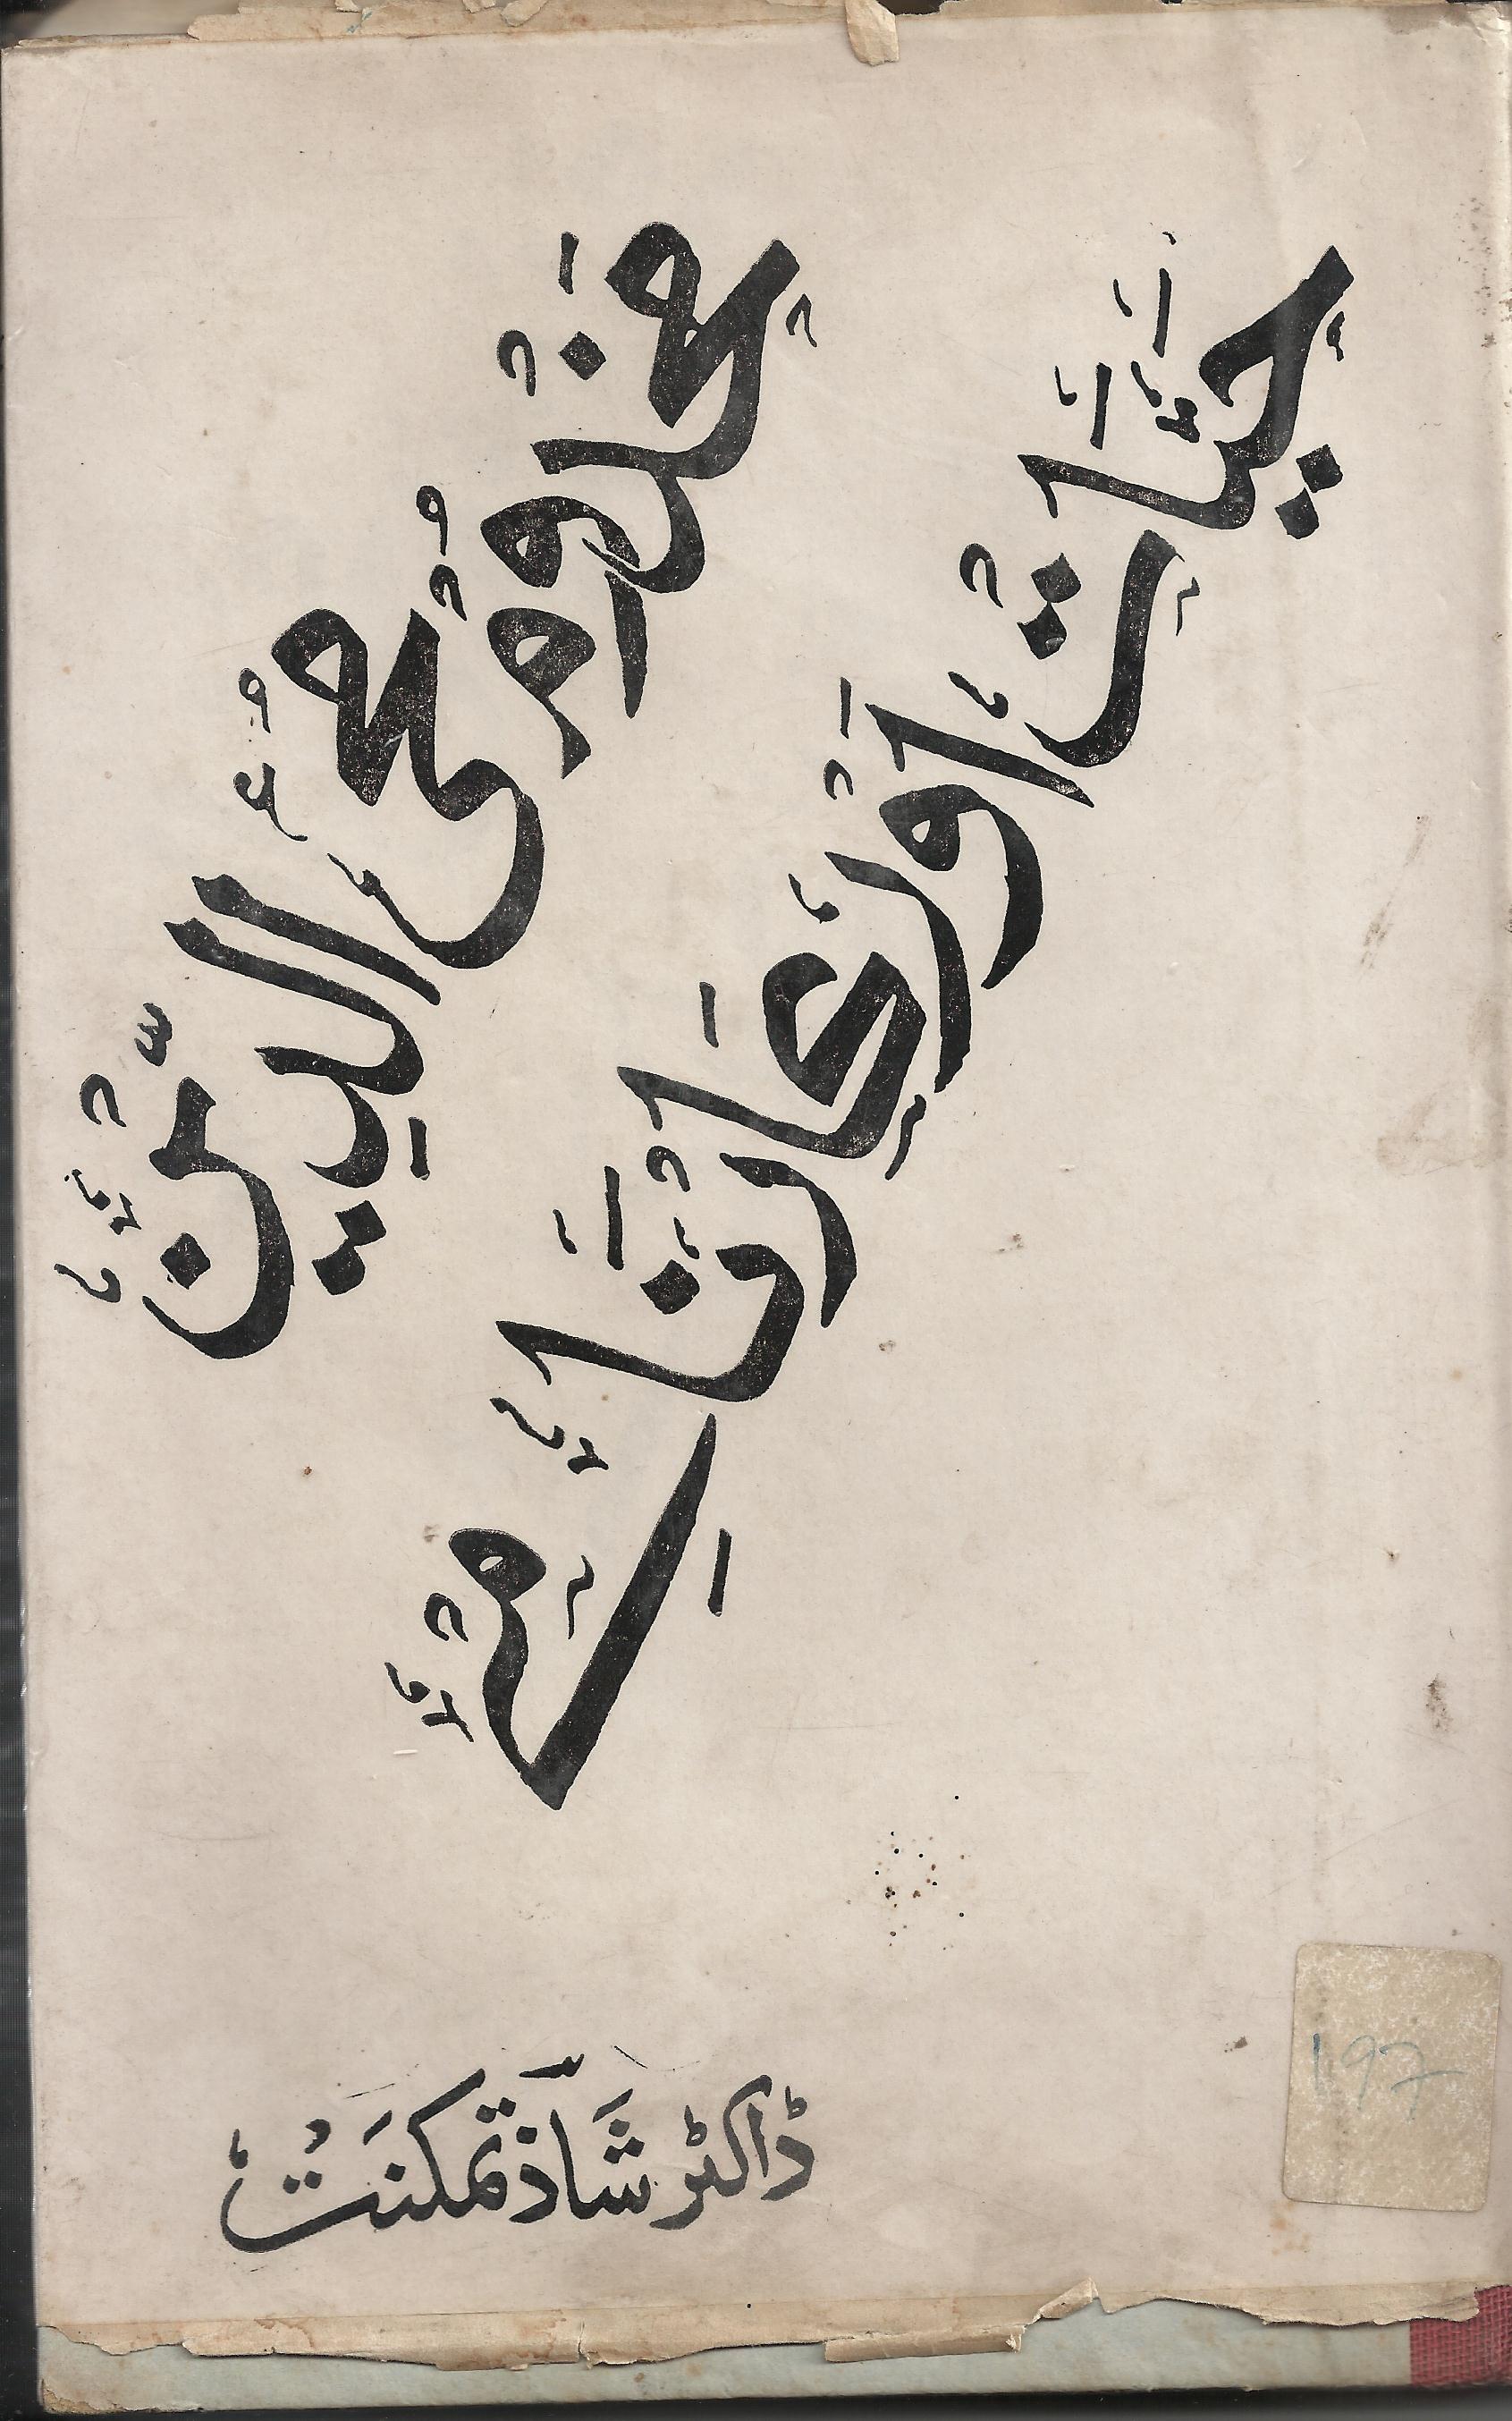 مخدوم محی الدین
حیات اور کارنامے
ڈاکٹر شاذ تمکنت
197